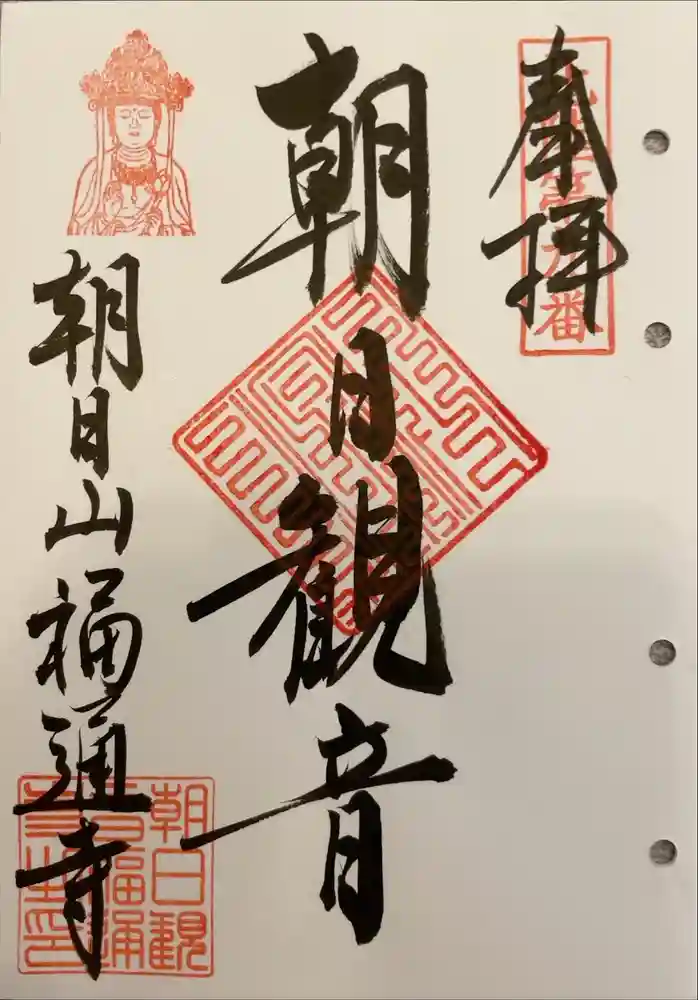 奉拝
朝日観音
朝日山福通寺
朝日観
音福通
寺之印